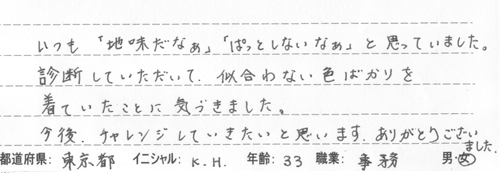 いつも「地味だなぁ」「ぱっとしないなぁ」と思っていました。
診断していただいて、似合わない色ばかりを
着ていたことに気づきました。
今後、チャレンジしていきたいと思います。ありがとうござい
ました。
都道府県: 東京都 イニシャル: K.H. 年齢: 33 職業: 事務 男・女